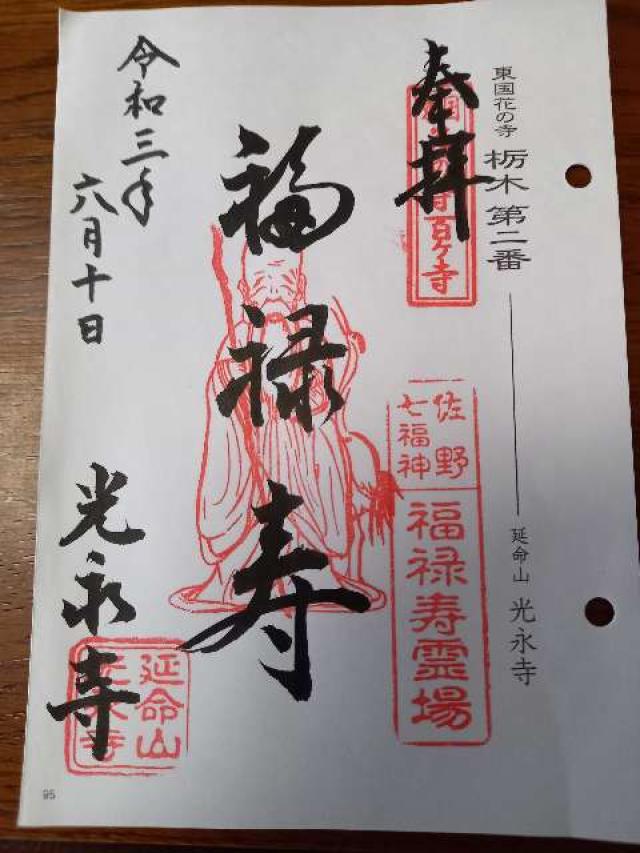 東国花の寺 栃木 第二番 延命山 光永寺
奉拝
百ヶ寺
佐野
七福神
福禄寿霊場
福禄寿
令和三年
六月十日
光永寺
延命山
光永寺
95